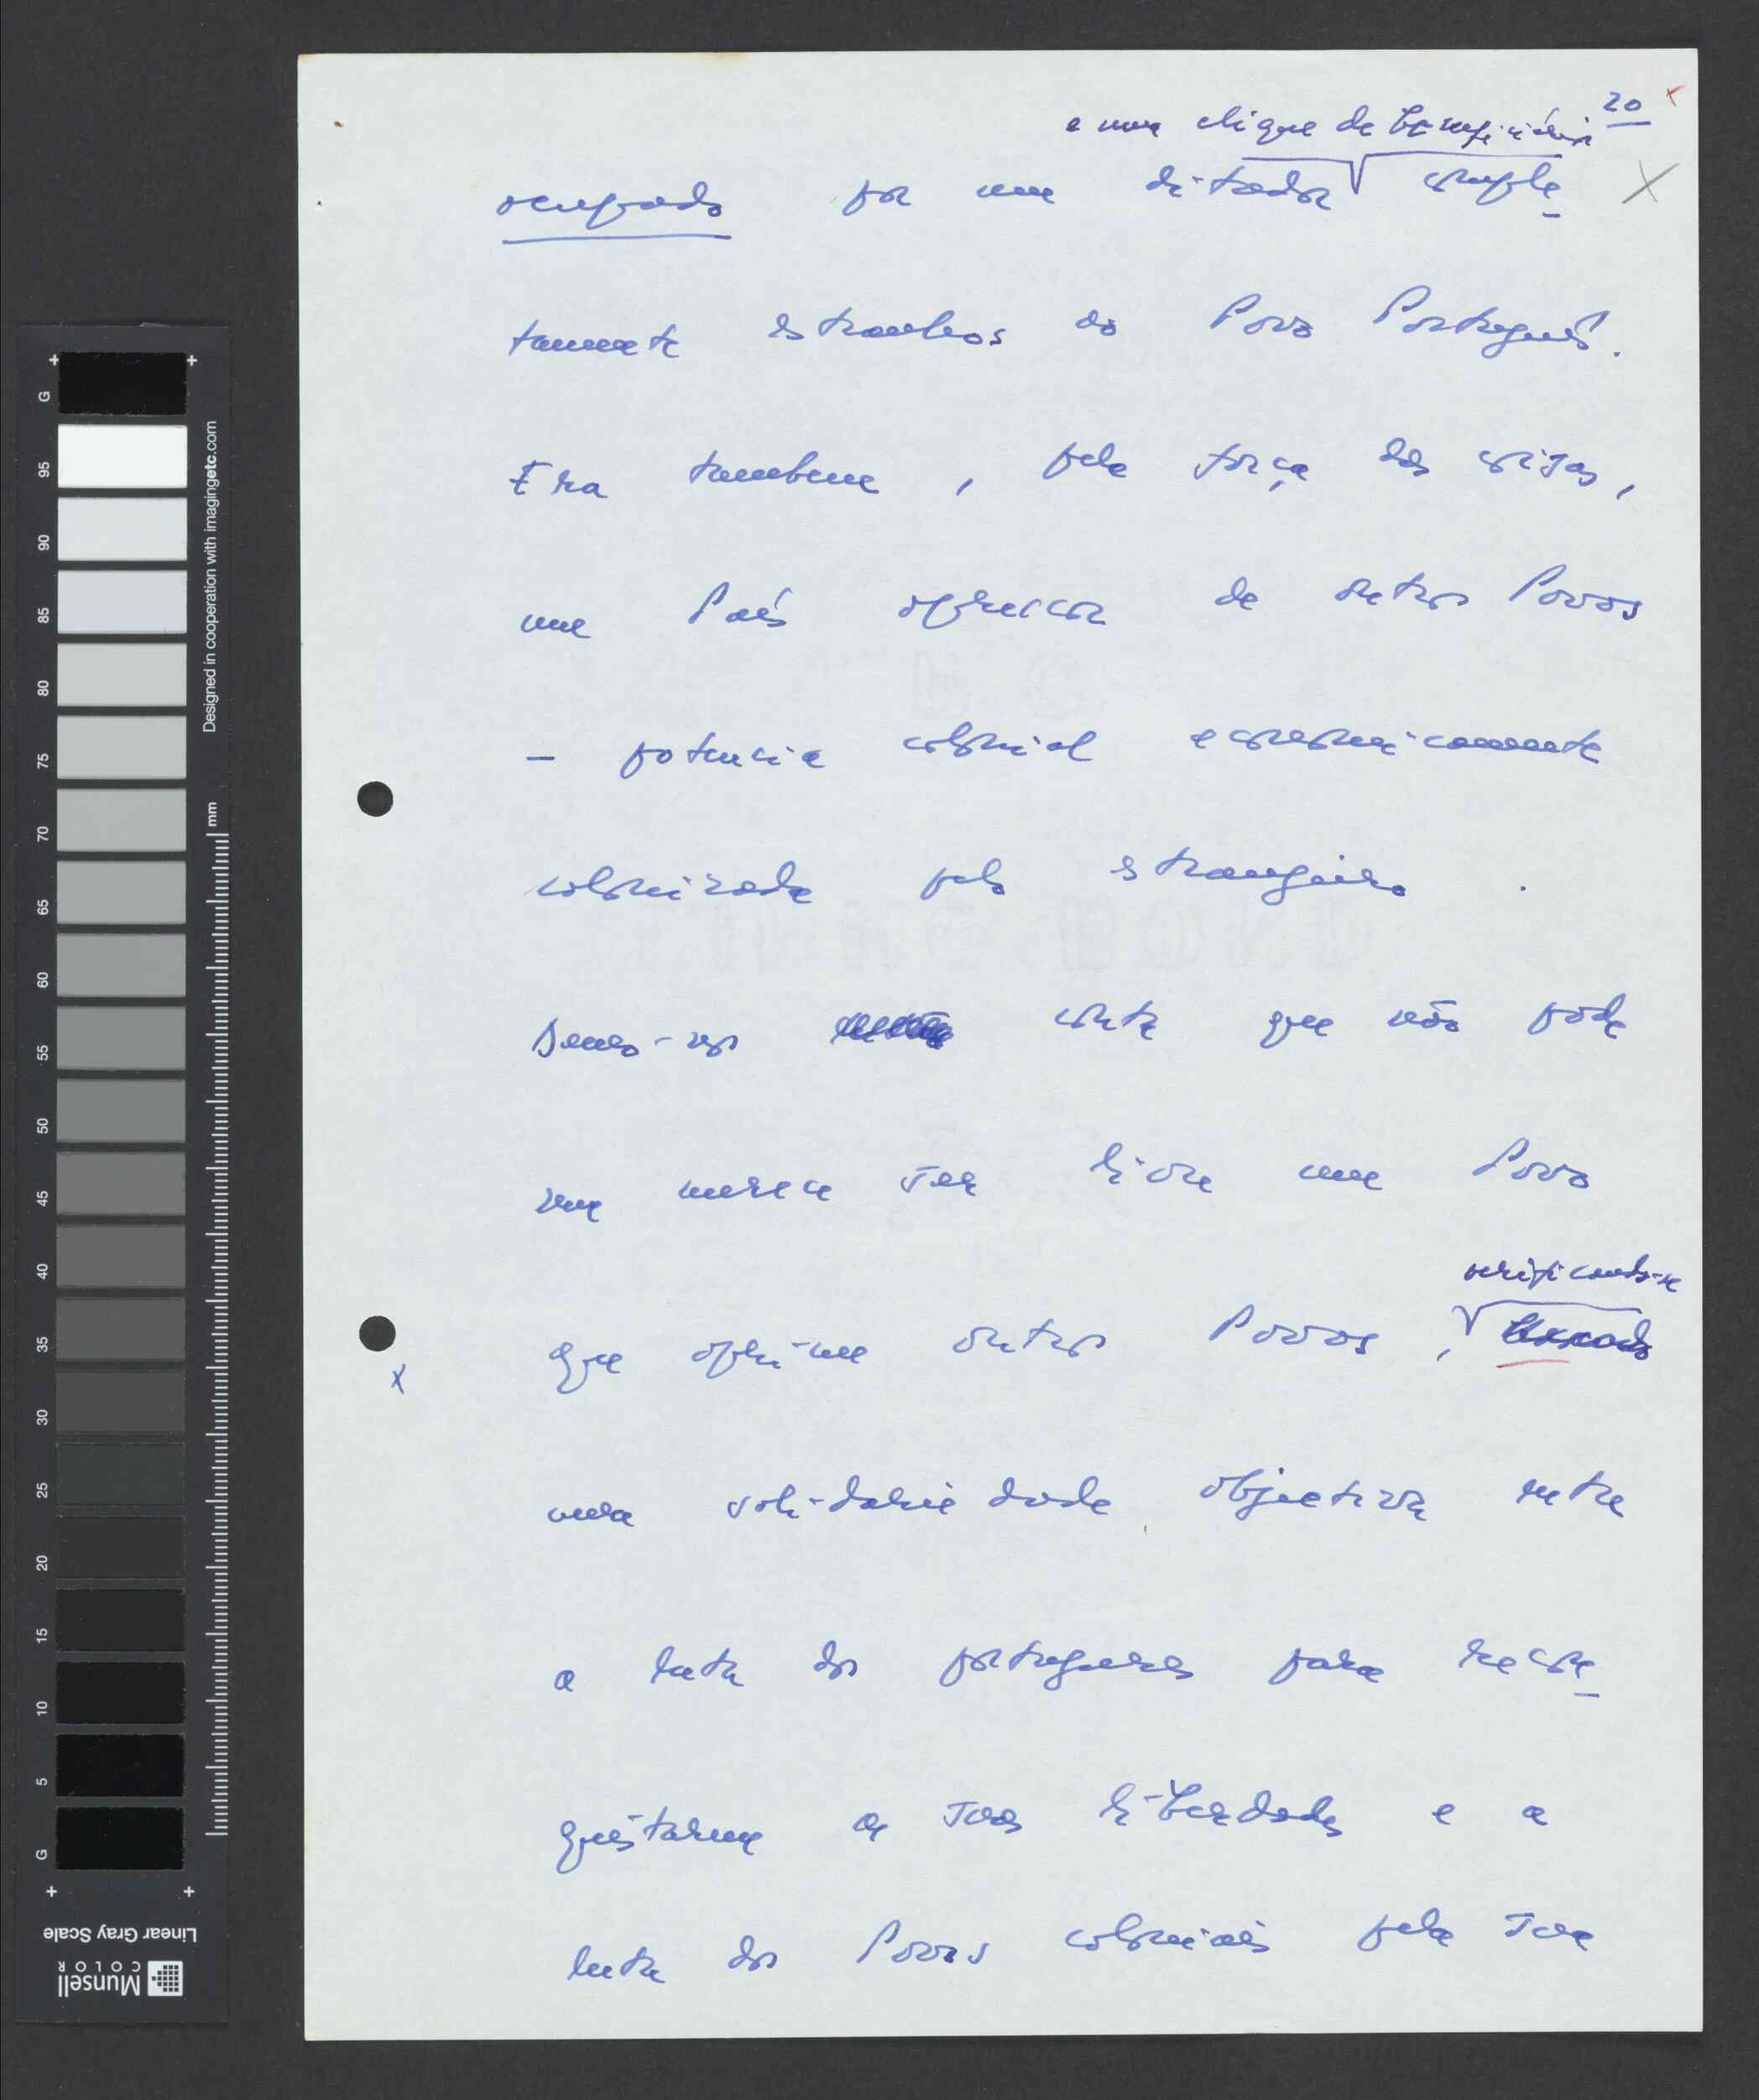 20 x
e uma clique de beneficiários
ocupado por um ditador comple_
tamente estranhos ao Povo Português.
Era tambem, pela força das coisas,
um País opressor de outros Povos
- potencia colonial economicamente
colonizada pelo estrangeiro.
Demo-nos conta que não pode
nem merece ser livre um Povo
verificando-se
que oprime outros Povos,
x
uma solidariedade objectiva entre
a luta dos portugueses para reco_
quistarem as suas liberdades e a
luta dos Povos coloniais pela sua
G 95 90 85 80 75 70 65 60 55 50 45 40 35 30 25 20 15 10 5 G
Designed in cooperation with imagingetc.com
mm
Linear Gray Scale
Munsell
COLOR